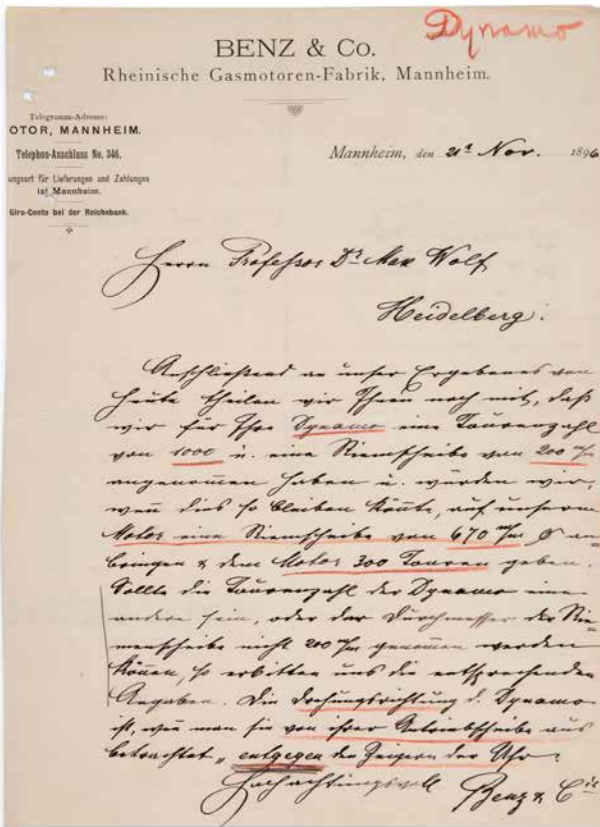 Dynamo
BENZ & Co.
Rheinische Gasmotoren-Fabrik, Mannheim.
Telegramm-Adresse:
OTOR, MANNHEIM.
Telephon-Anschluss No. 346.
ungsort für Lieferungen und Zahlungen
ist Mannheim.
Giro-Conto bei der Reichsbank.
Mannheim, den 21t Nov. 1896
Herrn Professor Dr Max Wolf
Heidelberg.
Anschließend an unser Ergebenes von
heute theilen wir Ihnen noch mit, daß
wir für Ihre Dynamo eine Tourenzahl
von 1000 u. eine Riemscheibe von 200 m/m
angenommen haben u. würden wir,
wenn dies so bleiben könnte, auf unserem
Motor eine Riemscheibe von 670 m/m Ø an-
bringen & dem Motor 300 Touren geben.
Sollte die Tourenzahl der Dynamo eine
andere sein, oder der Durchmesser der Rie-
menscheibe nicht 200 m/m genommen werden
können, so erbitten uns die entsprechenden
Angaben. Die Drehungsrichtung d. Dynamo
ist, wenn man sie von ihrer Antriebscheibe aus
betrachtet „entgegen den Zeigern der Uhr.
Hochachtungsvoll
Benz & Cie